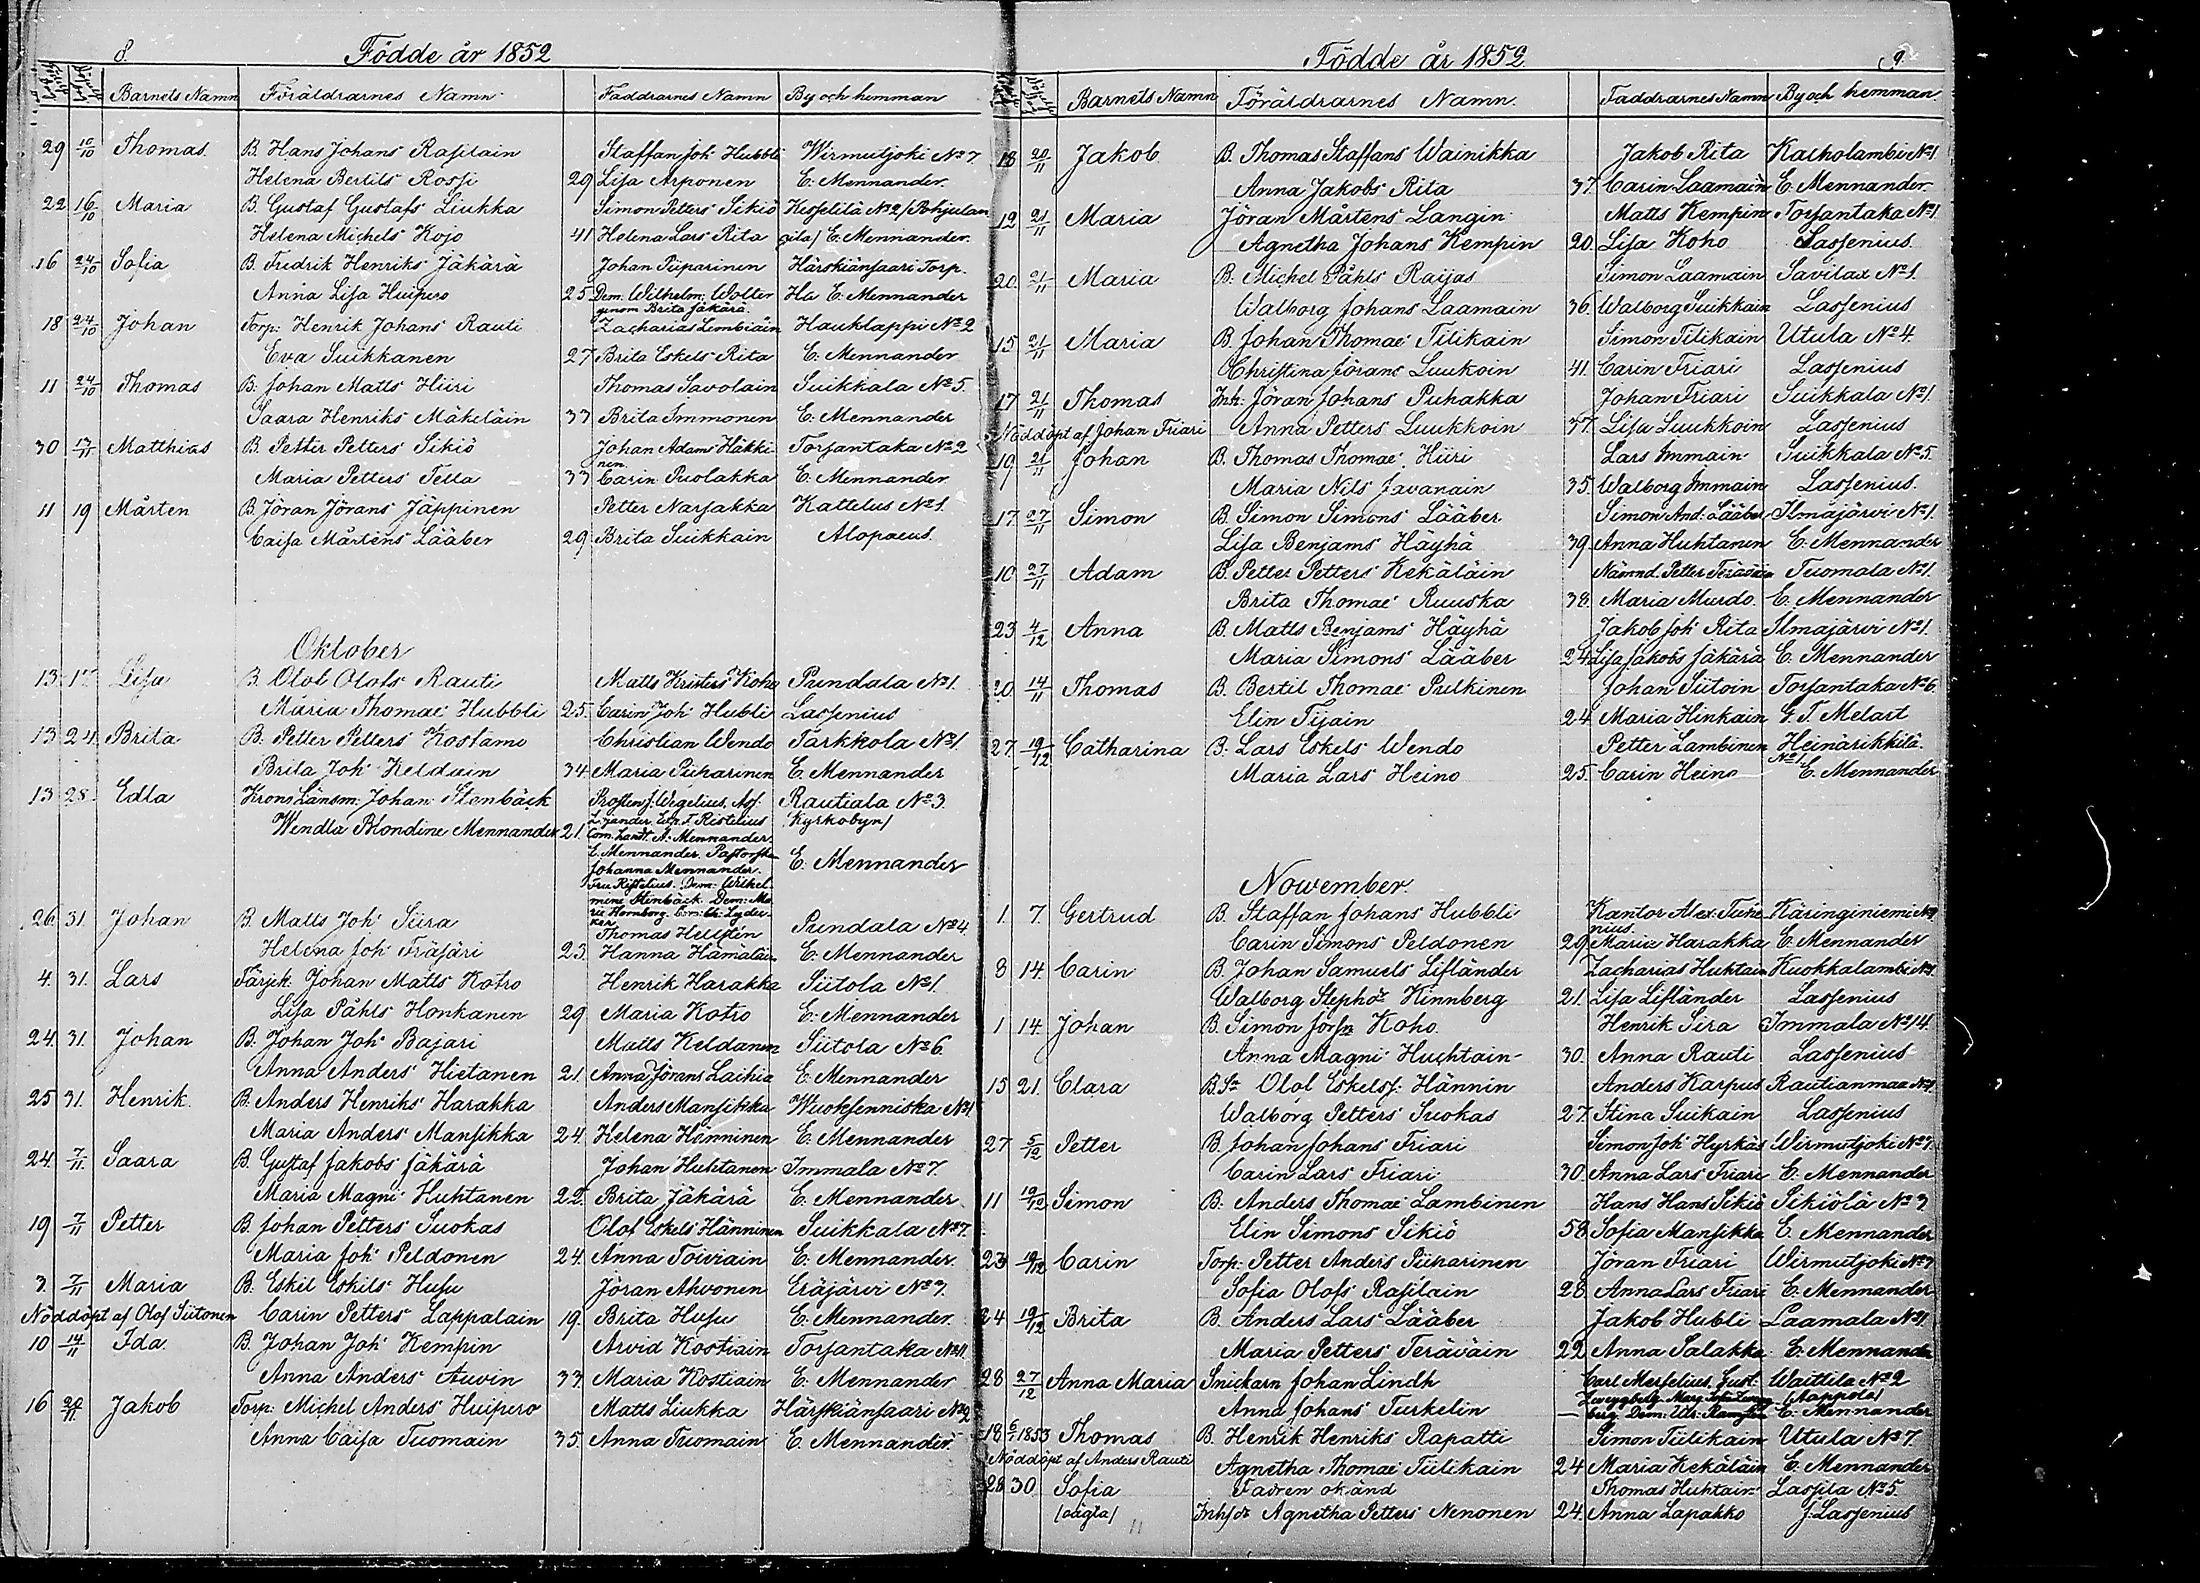 8.
Födde år 1852
Barnets Namn Föräldrarnes Namn Faddrarnes Namn By och hemman
29 10/10 Thomas. B. Hans Johans Rasilain Staffan Joh Hubbli Wirmutjoki No 7
Helena Bertils Rossi 29 Lisa Arponen E. Mennander.
22 16/10 Maria B. Gustaf Gustafs Liukka Simon Petters Sikiö Kesselilä No 2 /Pohjulan
Helena Michels Kojo 41 Helena Lars Rita gila/ E. Mennander.
16 24/10 Sofia B. Fredrik Henriks Jäkärä Johan Piiparinen Härskiänsaari Torp.
Anna Lisa Huipero 25 Dem. Wilhelm. Wolter Ha E. Mennander
genom Brita Jäkärä.
18 24/10 Johan Torp: Henrik Johans Rauti Zacharias Lembiäin Hauklappi No 2
Eva Suikkanen 27 Brita Eskels Rita E. Mennander
11 24/10 Thomas B. Johan Matts Hiiri Thomas Savolain Suikkala No 5.
Saara Henriks Mäkeläin 37 Brita Immonen E. Mennander
30 13/11 Matthias B. Petter Petters Sikiö Johan Adams Häkki Torsantaka No 2
nen
Maria Petters Tella 33 Carin Puolakka E. Mennander
11 19 Mårten B. Jöran Jörans Jäppinen Petter Narsakka Kattelus No 1.
Caisa Mårtens Lääber 29 Brita Suikkain Alopaeus.
Oktober
13 17 Lisa B. Olof Olofs Rauti Matts Kristers Koho Pundala No 1.
Maria Thomae Hubbli 25. Carin Joh Hubli Lassenius
13 24 Brita B. Petter Petters Kostamo Christian Wendo Tarkkola No 1.
Brita Joh Keldain 34 Maria Piiparinen E. Mennander
13 28. Edla Krono Länsm: Johan Stenbäck Prosten J. Wegelius, Asf. Rautiala No 3.
Wendla Blondine Mennander 21. L. Zander Exp. F. Ristelius Kyrkobyn/
Com. Landt. A. Mennander
E. Mennander. Pastorskan
Johanna Mennander. E. Mennander
Fru Ristelius. Dem: Wilhel
mine Stenbäck. Dem: Ma
rie Hornborg.
26. 31. Johan B. Matts Joh Siira Thomas Hellstén Pundala No 4
Helena Joh Träjäri 23. Hanna Hämäläin E. Mennander
4. 31. Lars Färjk: Johan Matts Kotro Henrik Harakka Siitola No 1.
Lisa Påhls Honkanen 29 Maria Kotro E. Mennander
24. 31. Johan B. Johan Joh Bajari Matts Keldanen Siitola No 6.
Anna Anders Hietanen 21 Anna Jörans Laihia E. Mennander
25 31. Henrik. B. Anders Henriks Harakka Anders Mansikka Wuoksenniska No 1
Maria Anders Mansikka 24. Helena Hänninen E. Mennander
24. 7/11 Saara B. Gustaf Jakobs Jäkärä Johan Huhtanen Immala No 7.
Maria Magni Huhtanen 22. Brita Jäkärä E. Mennander
19 7/11 Petter B. Johan Petters Suokas Olof Eskels Hänninen Suikkala No 7.
Maria Joh Peldonen 24. Anna Toiviain E. Mennander.
3. 7/11 Maria B. Eskil Eskils Husu Jöran Ahvonen Eräjärvi No 7.
Nöddöpt af Olof Siitonen Carin Petters Lappalain 19. Brita Husu E. Mennander.
10 14/11 Ida. B. Johan Joh Kempin Arvid Kostiain Torsantaka No 11.
Anna Anders Auvin 33. Maria Kostiain E. Mennander
16 20/11 Jakob Torp: Michel Anders Huipero Matts Liukka Härskiänsaari No 2
Anna Caisa Tuomain 35. Anna Tuomain E. Mennander.
Födde år 1852. 9.
Barnets Namn Föräldrarnes Namn. Faddrarnes Namn By och hemman.
18 20/11 Jakob B. Thomas Staffans Wainikka Jakob Rita Kalholambi No 1
Anna Jakobs Rita 37. Carin Laamain E. Mennander
12 21/11 Maria Jöran Mårtens Langin Matts Kempin Torsantaka No 1
Agnetha Johans Kempin 20. Lisa Koho Lassenius.
20. 21/11 Maria B. Michel Påhls Raijas Simon Laamain Savilax No 1.
Walborg Johans Laamain 36. Walborg Suikkain Lassenius
15 21/11 Maria B. Johan Thomae Tilikain Simon Tilikain Utula No 4.
Christina Jörans Luukoin 41. Carin Friari Lassenius
17 21/11 Thomas Inh: Jöran Johans Puhakka Johan Friari Suikkala No 1.
Nöddöpt af Johan Friari Anna Petters Luukkoin 37. Lisa Luukkoin Lassenius
19 21/11 Johan B. Thomas Thomae Hiiri Lars Immain Suikkala No 5.
Maria Nils Javanain 35. Walborg Immain Lassenius.
17 27/11 Simon B. Simon Simons Lääber Simon And: Lääber Ilmajärvi No 1.
Lisa Benjams Häyhä 39. Anna Huhtanen E. Mennander
10 27/11 Adam B. Petter Petters Kekäläin Nämnd. Petter Teräväin Tuomala No 1.
Brita Thomae Ruuska 38. Maria Murdo E. Mennander
23 4/12 Anna B. Matts Benjams Häyhä Jakob Joh Rita Ilmajärvi No 1.
Maria Simons Lääber 24 Lisa Jakobs Jäkärä E. Mennander
20. 14/11 Thomas B. Bertil Thomae Pulkinen Johan Siitoin Torsantaka No 6.
Elin Tijain 24 Maria Hinkain G. T. Melart
27. 19/12 Catharina B. Lars Eskels Wendo Petter Lambinen Heinärikkilä.
Maria Lars Heino 25. Carin Heino No 1 E. Mennander
Nowember.
1. 7. Gertrud B. Staffan Johans Hubbli Kantor Alex. Ture Käringiniemi No
nius.
Carin Simons Peldonen 29 Maria Harakka E. Mennander
8 14. Carin B. Johan Samuels Lifländer Zacharias Huhtain Kuokkalambi No 1
Walborg Steph dr Kinnberg 21. Lisa Lifländer Lassenius
1 14. Johan B. Simon Jörsn Koho. Henrik Sira Immala No 14.
Anna Magni Huchtain 30. Anna Rauti Lassenius
15 21. Clara B. Sn Olof Eskels. Hännin Anders Karpus Rautianmaa No 1.
Walborg Petters Suokas 27. Stina Suikain Lassenius
27 5/12 Petter B. Johan Johans Friari Simon Joh Hyrkäs Wirmutjoki No 7.
Carin Lars Friari 30. Anna Lars Friari E. Mennander
11 19/12 Simon B. Anders Thomae Lambinen Hans Hans Sikiö Sikiölä No 3
Elin Simons Sikiö 38 Sofia Mansikka E. Mennander
23 19/12 Carin Torp: Petter Anders Piiparinen Jöran Friari Wirmutjoki No 7
Sofia Olofs Rasilain 28. Anna Lars Friari E. Mennander
24 19/12 Brita B. Anders Lars Lääber Jakob Hubli Laamala No 1.
Maria Petters Teräväin 22 Anna Salakka E. Mennander
28 27/12 Anna Maria Snickarn Johan Lindh Carl Merselius. Gust. Waittila No 2
Zweygberg. Marg. Sofia Zweyg /Nappola/
Anna Johans Turkelin — berg. Dem: Ulr: Ramstén E. Mennander
18 6/1 1853 Thomas B. Henrik Henriks Rapatti Simon Tiilikain Utula No 7.
Nöddöpt af Anders Rauti Agnetha Thomae Tiilikain 24 Maria Kekäläin E. Mennander
28 30 Sofia Fadren okänd Thomas Huhtain Lassila No 5.
/oägta/ Inhs dr Agnetha Petters Nenonen 24. Anna Lapakko J. Lassenius